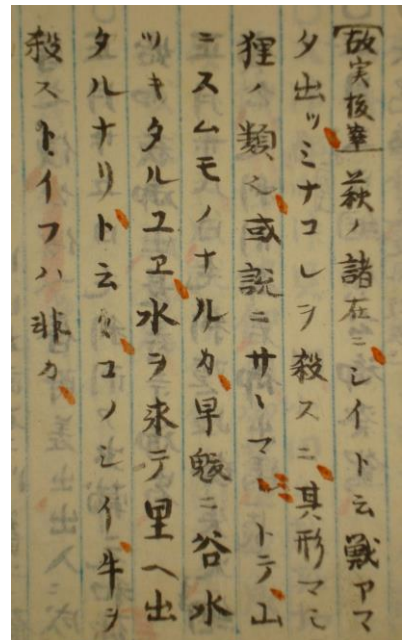 故実抜萃 萩ノ諸在ニシイト云獣アマ
タ出ツミナコレヲ殺スニ其形マミ
狸ノ類也或説ニサヽマットテ山
ニスムモノナルカ早魃ニ谷水
ツキタルユヱ水ヲ求テ里ヘ出
タルナリト云々コノシイ牛ヲ
殺ストイフハ非カ